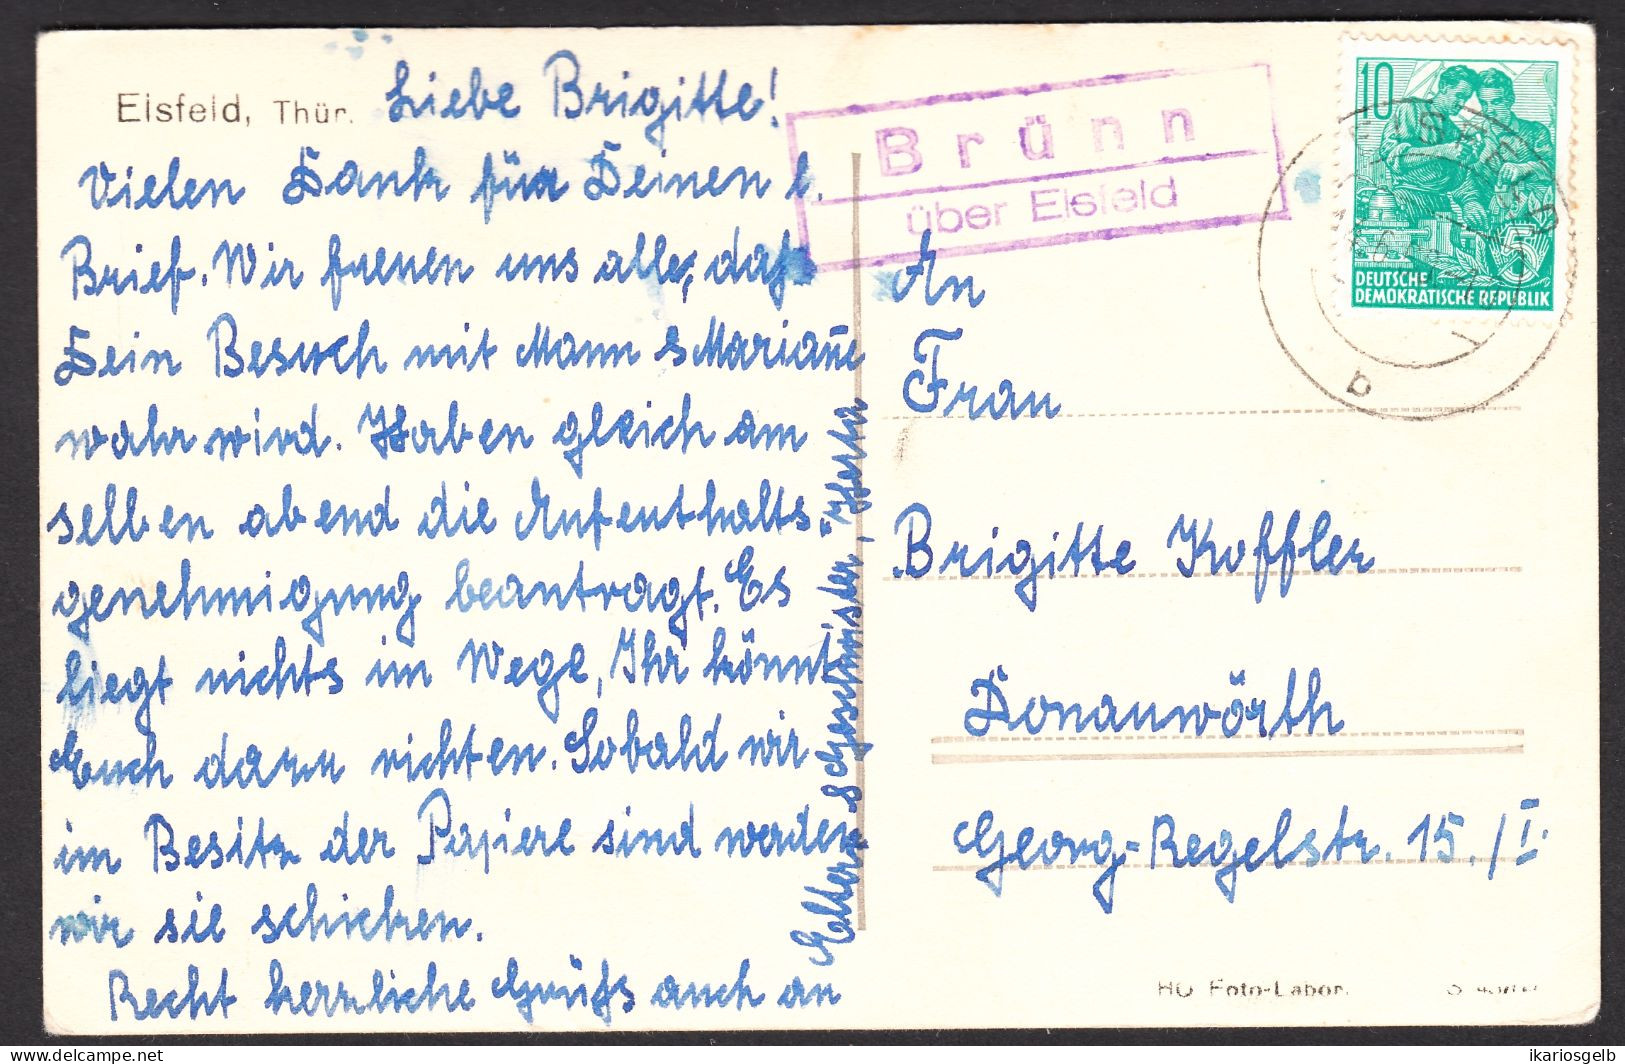 Eisfeld, Thür.
Liebe Brigitte!
Vielen Dank für Deinen l.
Brief. Wir freuen uns alle, daß
Dein Besuch mit Mann & Marian̄e
wahr wird. Haben gleich am
selben abend die Aufenthalts-
genehmigung beantragt. Es
liegt nichts im Wege, Ihr könnt
Euch dazu richten. Sobald wir
im Besitz der Papiere sind werden
wir sie schicken.
Recht herzliche Grüße auch an
Eltern & Geschwister, Herta
Brünn
über Eisfeld
10
5
DEUTSCHE
DEMOKRATISCHE REPUBLIK
EISFELD
b
An
Frau
Brigitte Koffler
Donauwörth
Georg-Regelstr. 15./I.
HO Foto-Labor.
delcampe.net
ikariosgelb